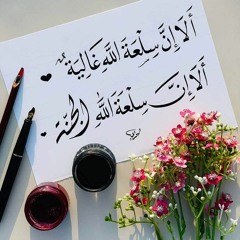 أَلَا إِنَّ سِلْعَةَ اللهِ غَالِيَةٌ
أَلَا إِنَّ سِلْعَةَ اللهِ الجَنَّة